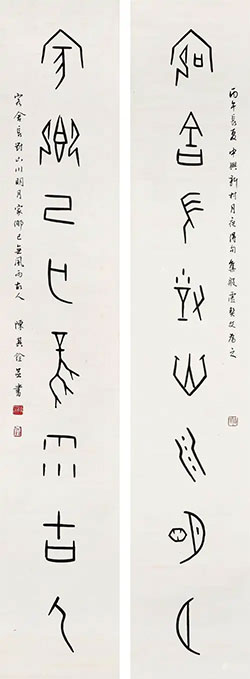 丙午長夏中興新村月夜偶句集殷虛契文為之
客舍長對山川明月
家鄉已亡風雨古人
客舍長對山川明月家鄉已無風雨故人 陳其銓並書